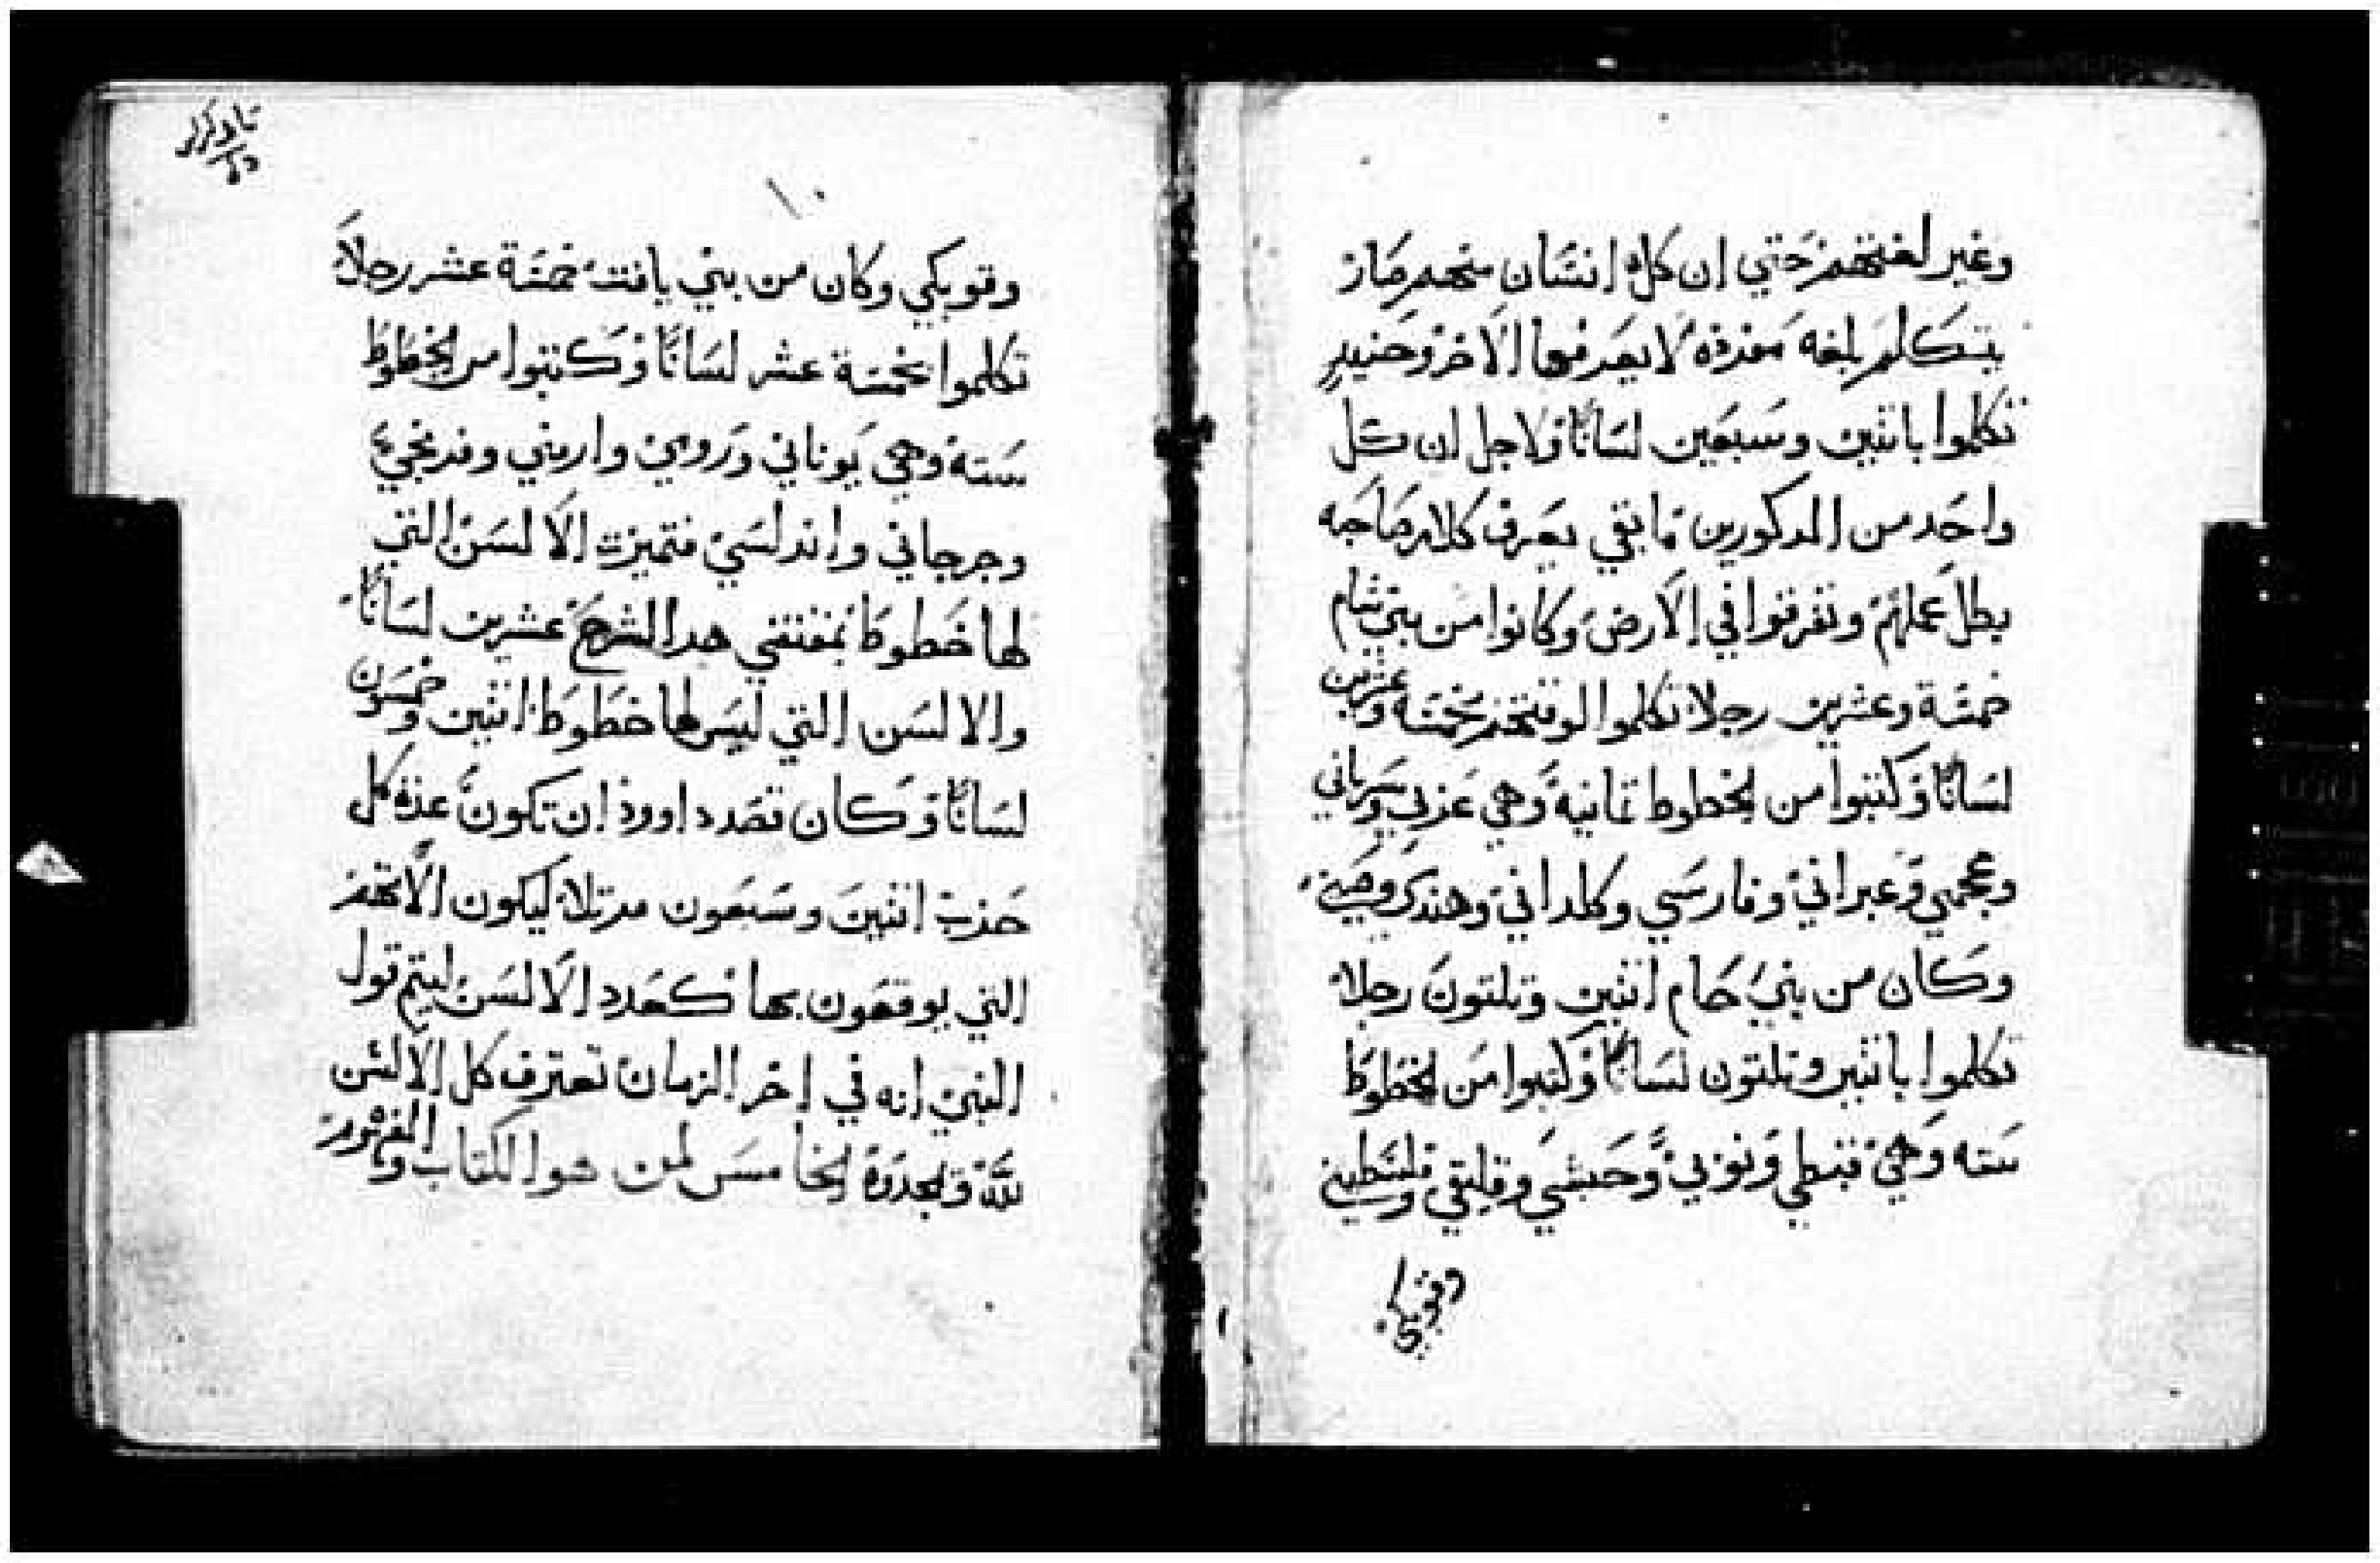 وغير لغتهم حتي ان كل انسان منهم صار
يتكلم بلغه مفرده لا يعرفها الاخر وحنيد
تكلموا باتنين وسبعين لسانًا ولاجل ان كل
واحد من المدكورين ما بقي يعرف كلام صاحبه
بطل عملهم وتفرقوا في الارض وكانوا من بني شام
خمسة وعشرين رجلا تكلموا لوقتهم بخمسة وعشرين
لسانًا وكتبوا من الخطوط تمانيه وهي عربي وسرياني
وعجمي وعبراني وفارسي وكلداني وهندي وصيني
وكان من بني حام اتنين وتلتون رجلا
تكلموا باتنين وتلتون لسانًا وكتبوا من الخطوط
سته وهي قبطي ونوبي وحبشي وفليقي وفلسطيني
وقوبكي
١٠
وقوبكي وكان من بني يافت خمسة عشر رجلاً
تكلموا بخمسة عشر لسانًا وكتبوا من الخطوط
سته وهي يوناني ورومي وارمني وفرنجي
وجرجاني واندلسي فتميزت الالسن التي
لها خطوط بمقتضي هدا الشرح عشرين لسانًا
والالسن التي ليس لها خطوط اتنين وخمسون
لسانًا وكان قصد داوود ان تكون عدة كل
حزب اتنين وسبعون مرتلا ليكون الانغم
التي يوقعون بها كعدد الالسن ليتم قول
النبي انه في اخر الزمان تعترف كل الالسن
لله والجدرة الخامس لمن هو الكتاب والمزمور